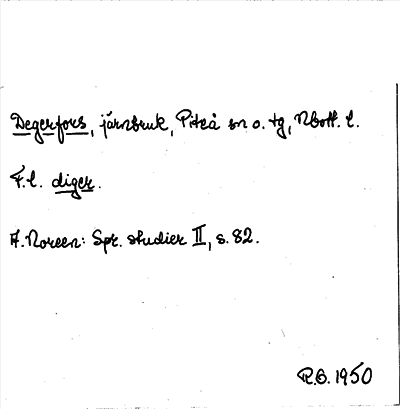 Degerfors, järnbruk, Piteå sn o. tg, Nbott. l.
F.l. diger.
A. Noreen: Spr. studier II, s. 82.
R.G. 1950